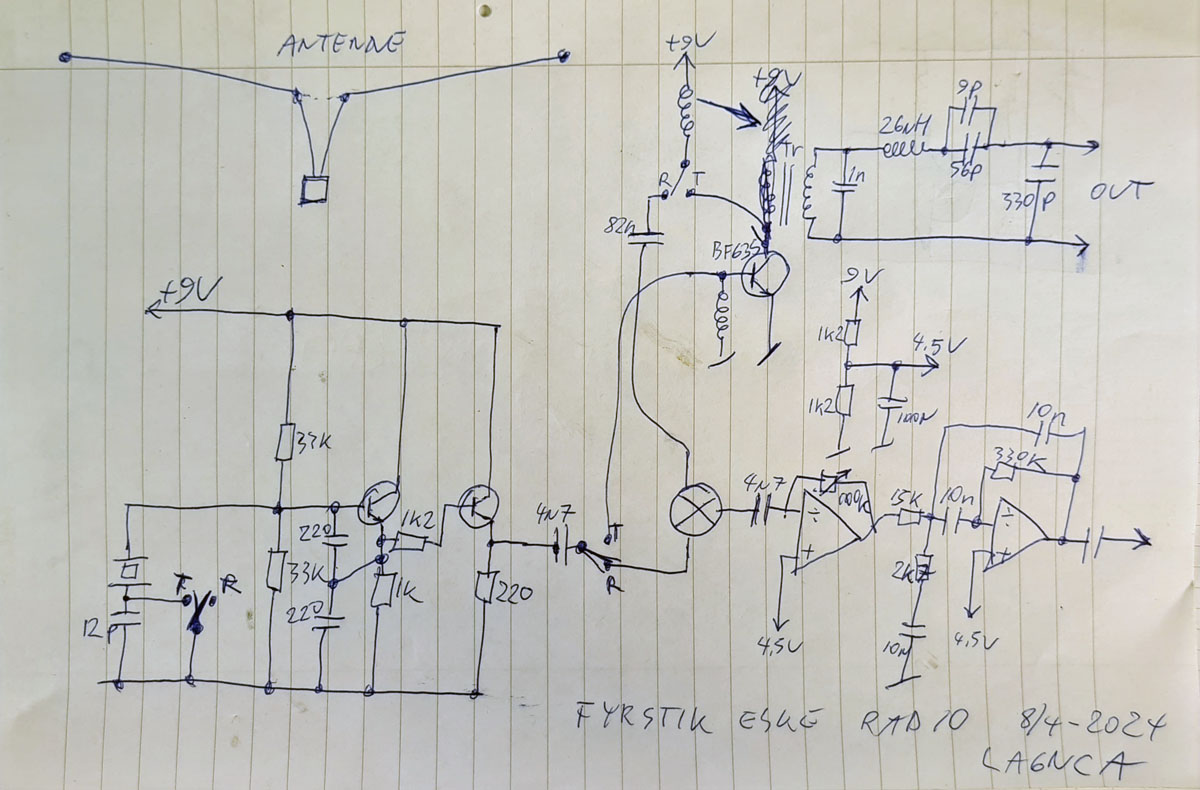 ANTENNE
+9V
+9V
9p
26nH
56p
Tr
1n
330p
OUT
R
T
82n
BF635
9V
+9V
1k2
4.5V
1k2
100n
10n
33K
330K
4N7
100k
15K
10n
220
1K2
4N7
T
R
33K
1K
220
2K7
T
R
12p
220
10N
4.5V
4.5V
FYRSTIK ESKE RADIO 8/4-2024
LA6NCA